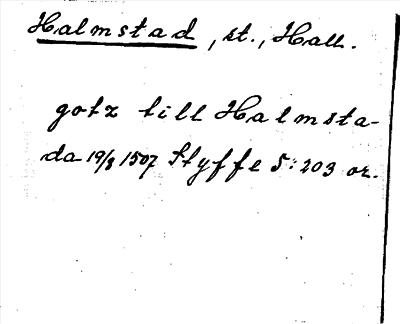 Halmstad, st., Hall.
gotz till Halmsta-
da 19/8 1507 Styffe 5: 203 or.